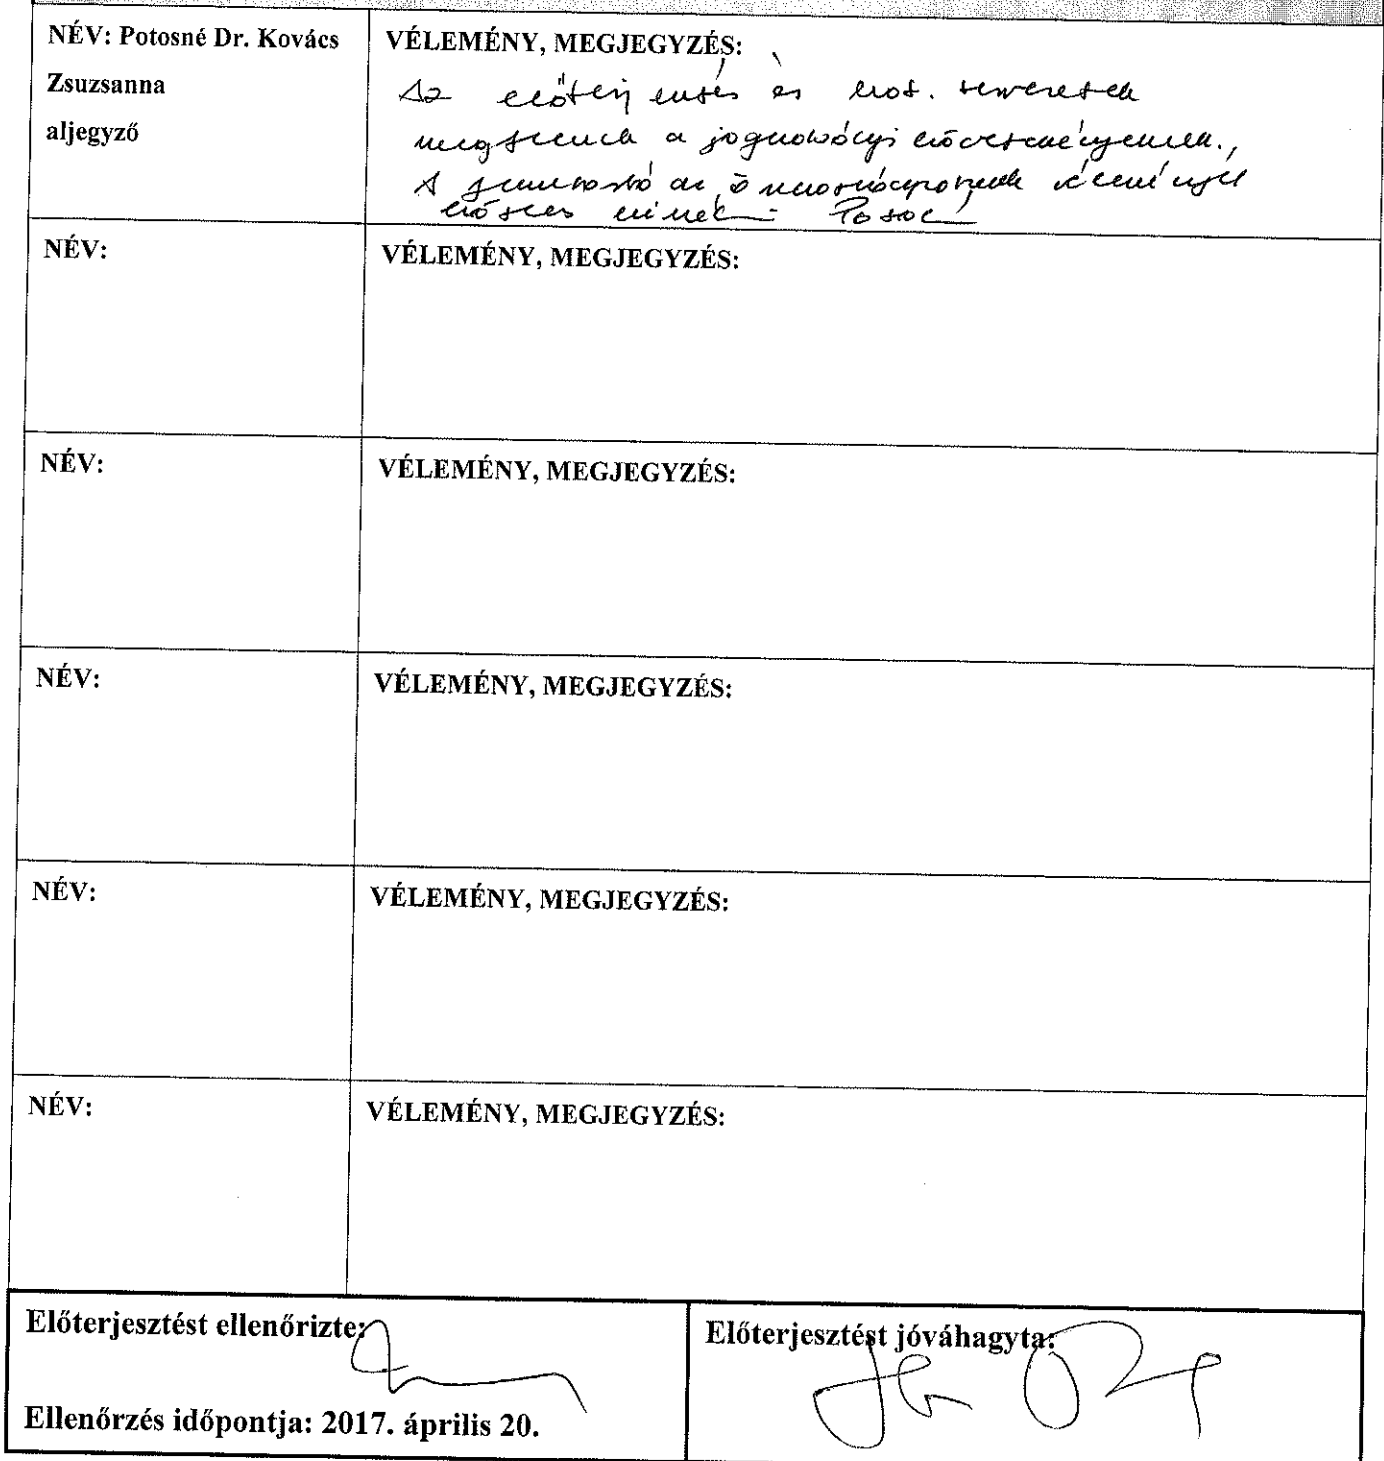 NÉV: Potosné Dr. Kovács
Zsuzsanna
aljegyző
VÉLEMÉNY, MEGJEGYZÉS:
Az előterjesztés és hat. tervezetek
megfelelnek a jogszabályi előírásoknak.
A
NÉV:
VÉLEMÉNY, MEGJEGYZÉS:
NÉV:
VÉLEMÉNY, MEGJEGYZÉS:
NÉV:
VÉLEMÉNY, MEGJEGYZÉS:
NÉV:
VÉLEMÉNY, MEGJEGYZÉS:
NÉV:
VÉLEMÉNY, MEGJEGYZÉS:
Előterjesztést ellenőrizte:
Ellenőrzés időpontja: 2017. április 20.
Előterjesztést jóváhagyta: